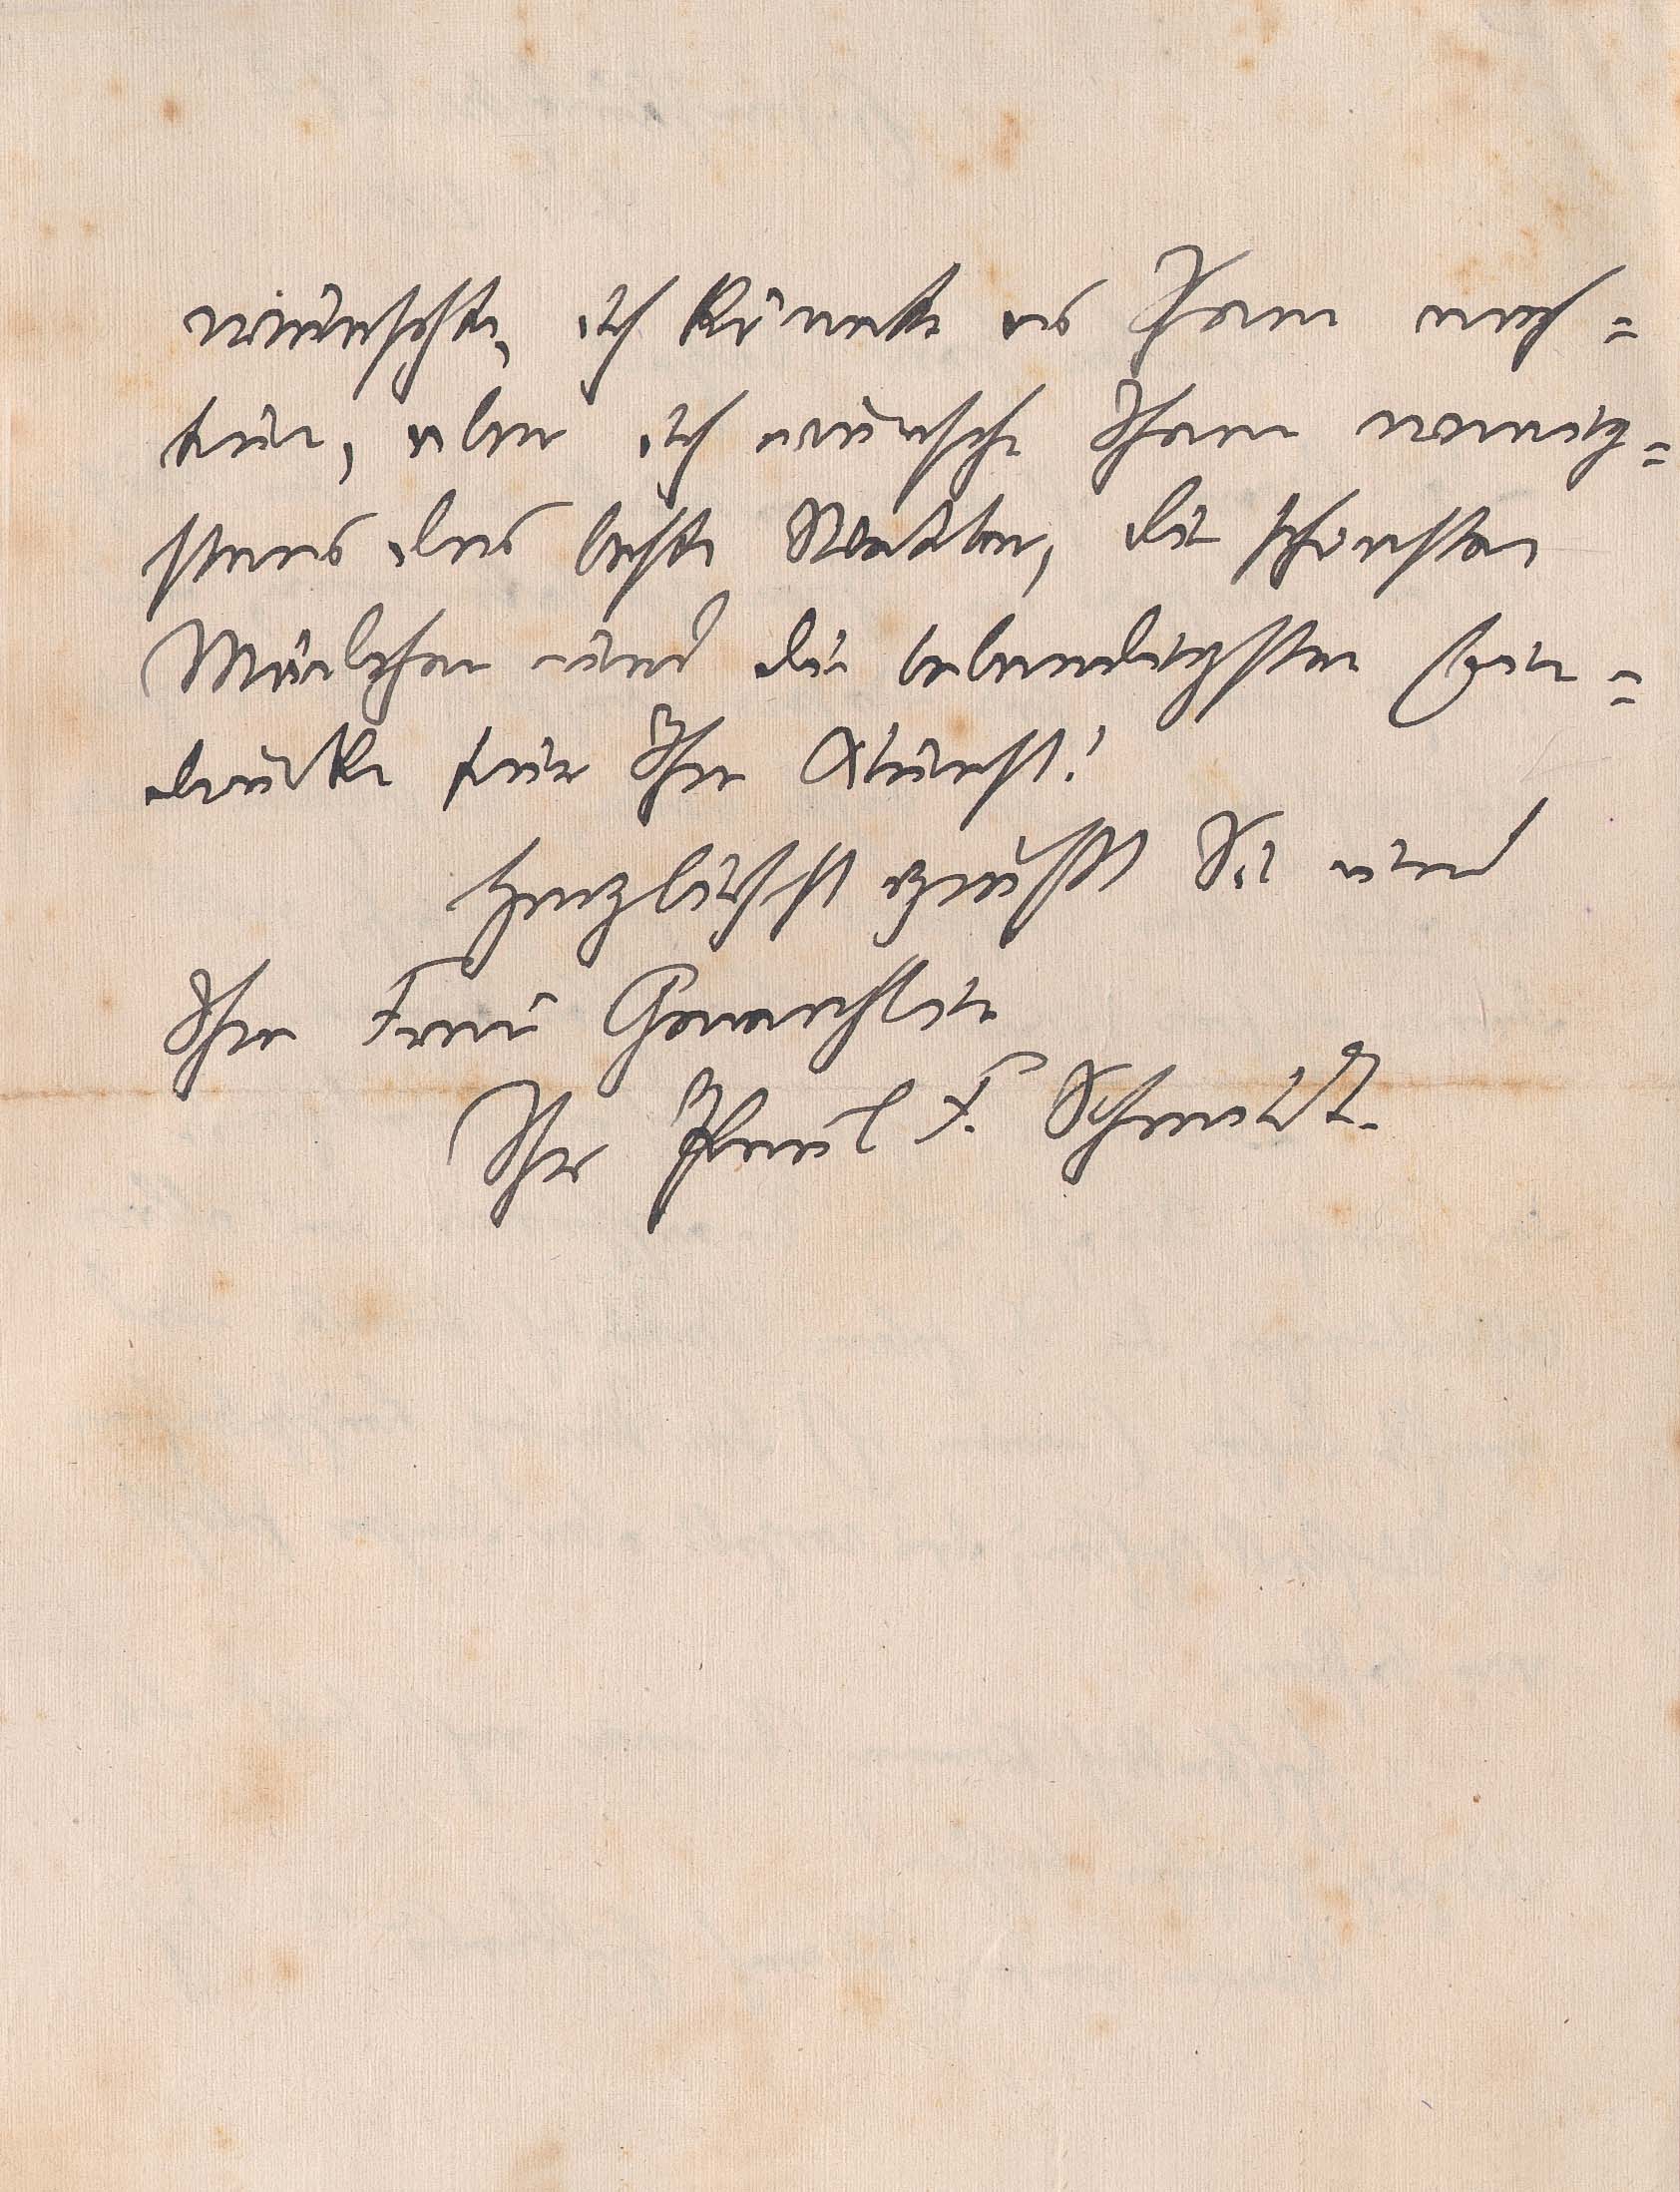 wünschte, ich könnte es Ihnen nach=
tun, aber ich wünsche Ihnen wenig=
stens das beste Wetter, die schönsten
Mädchen und die lebendigsten Ein=
drücke für Ihre Kunst!
Herzlichst grüßt Sie und
Ihre Frau Gemahlin
Ihr Paul F. Schmidt.